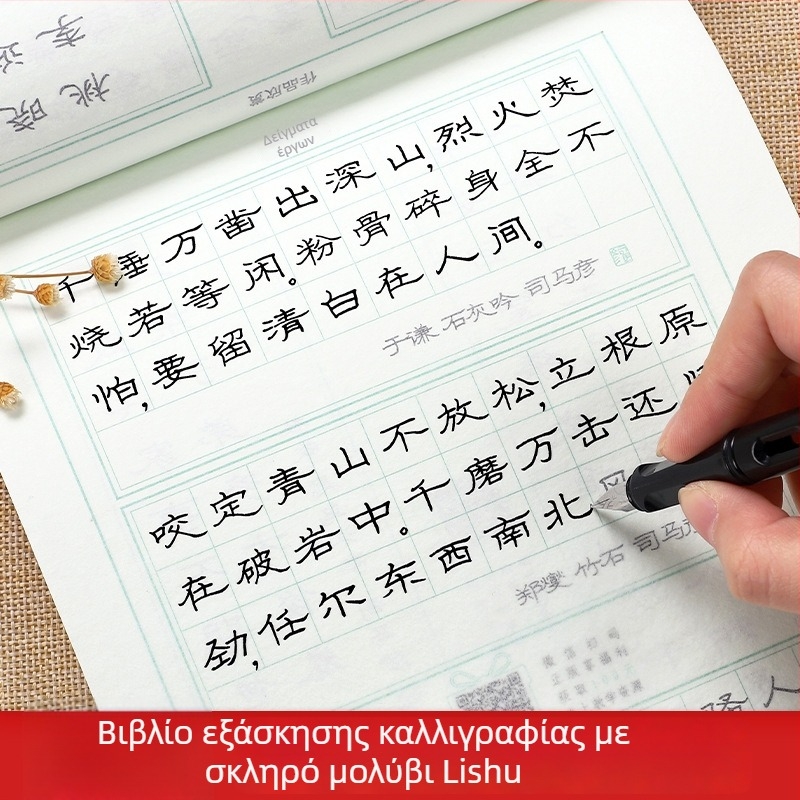 作品欣赏
Δείγματα
έργων
千锤万凿出深山,烈火焚
烧若等闲。粉骨碎身全不
怕,要留清白在人间。
于谦 石灰吟 司马彦
咬定青山不放松,立根原
在破岩中。千磨万击还
劲,任尔东西南北
郑燮 竹石 司马彦
Βιβλίο εξάσκησης καλλιγραφίας με
σκληρό μολύβι Lishu